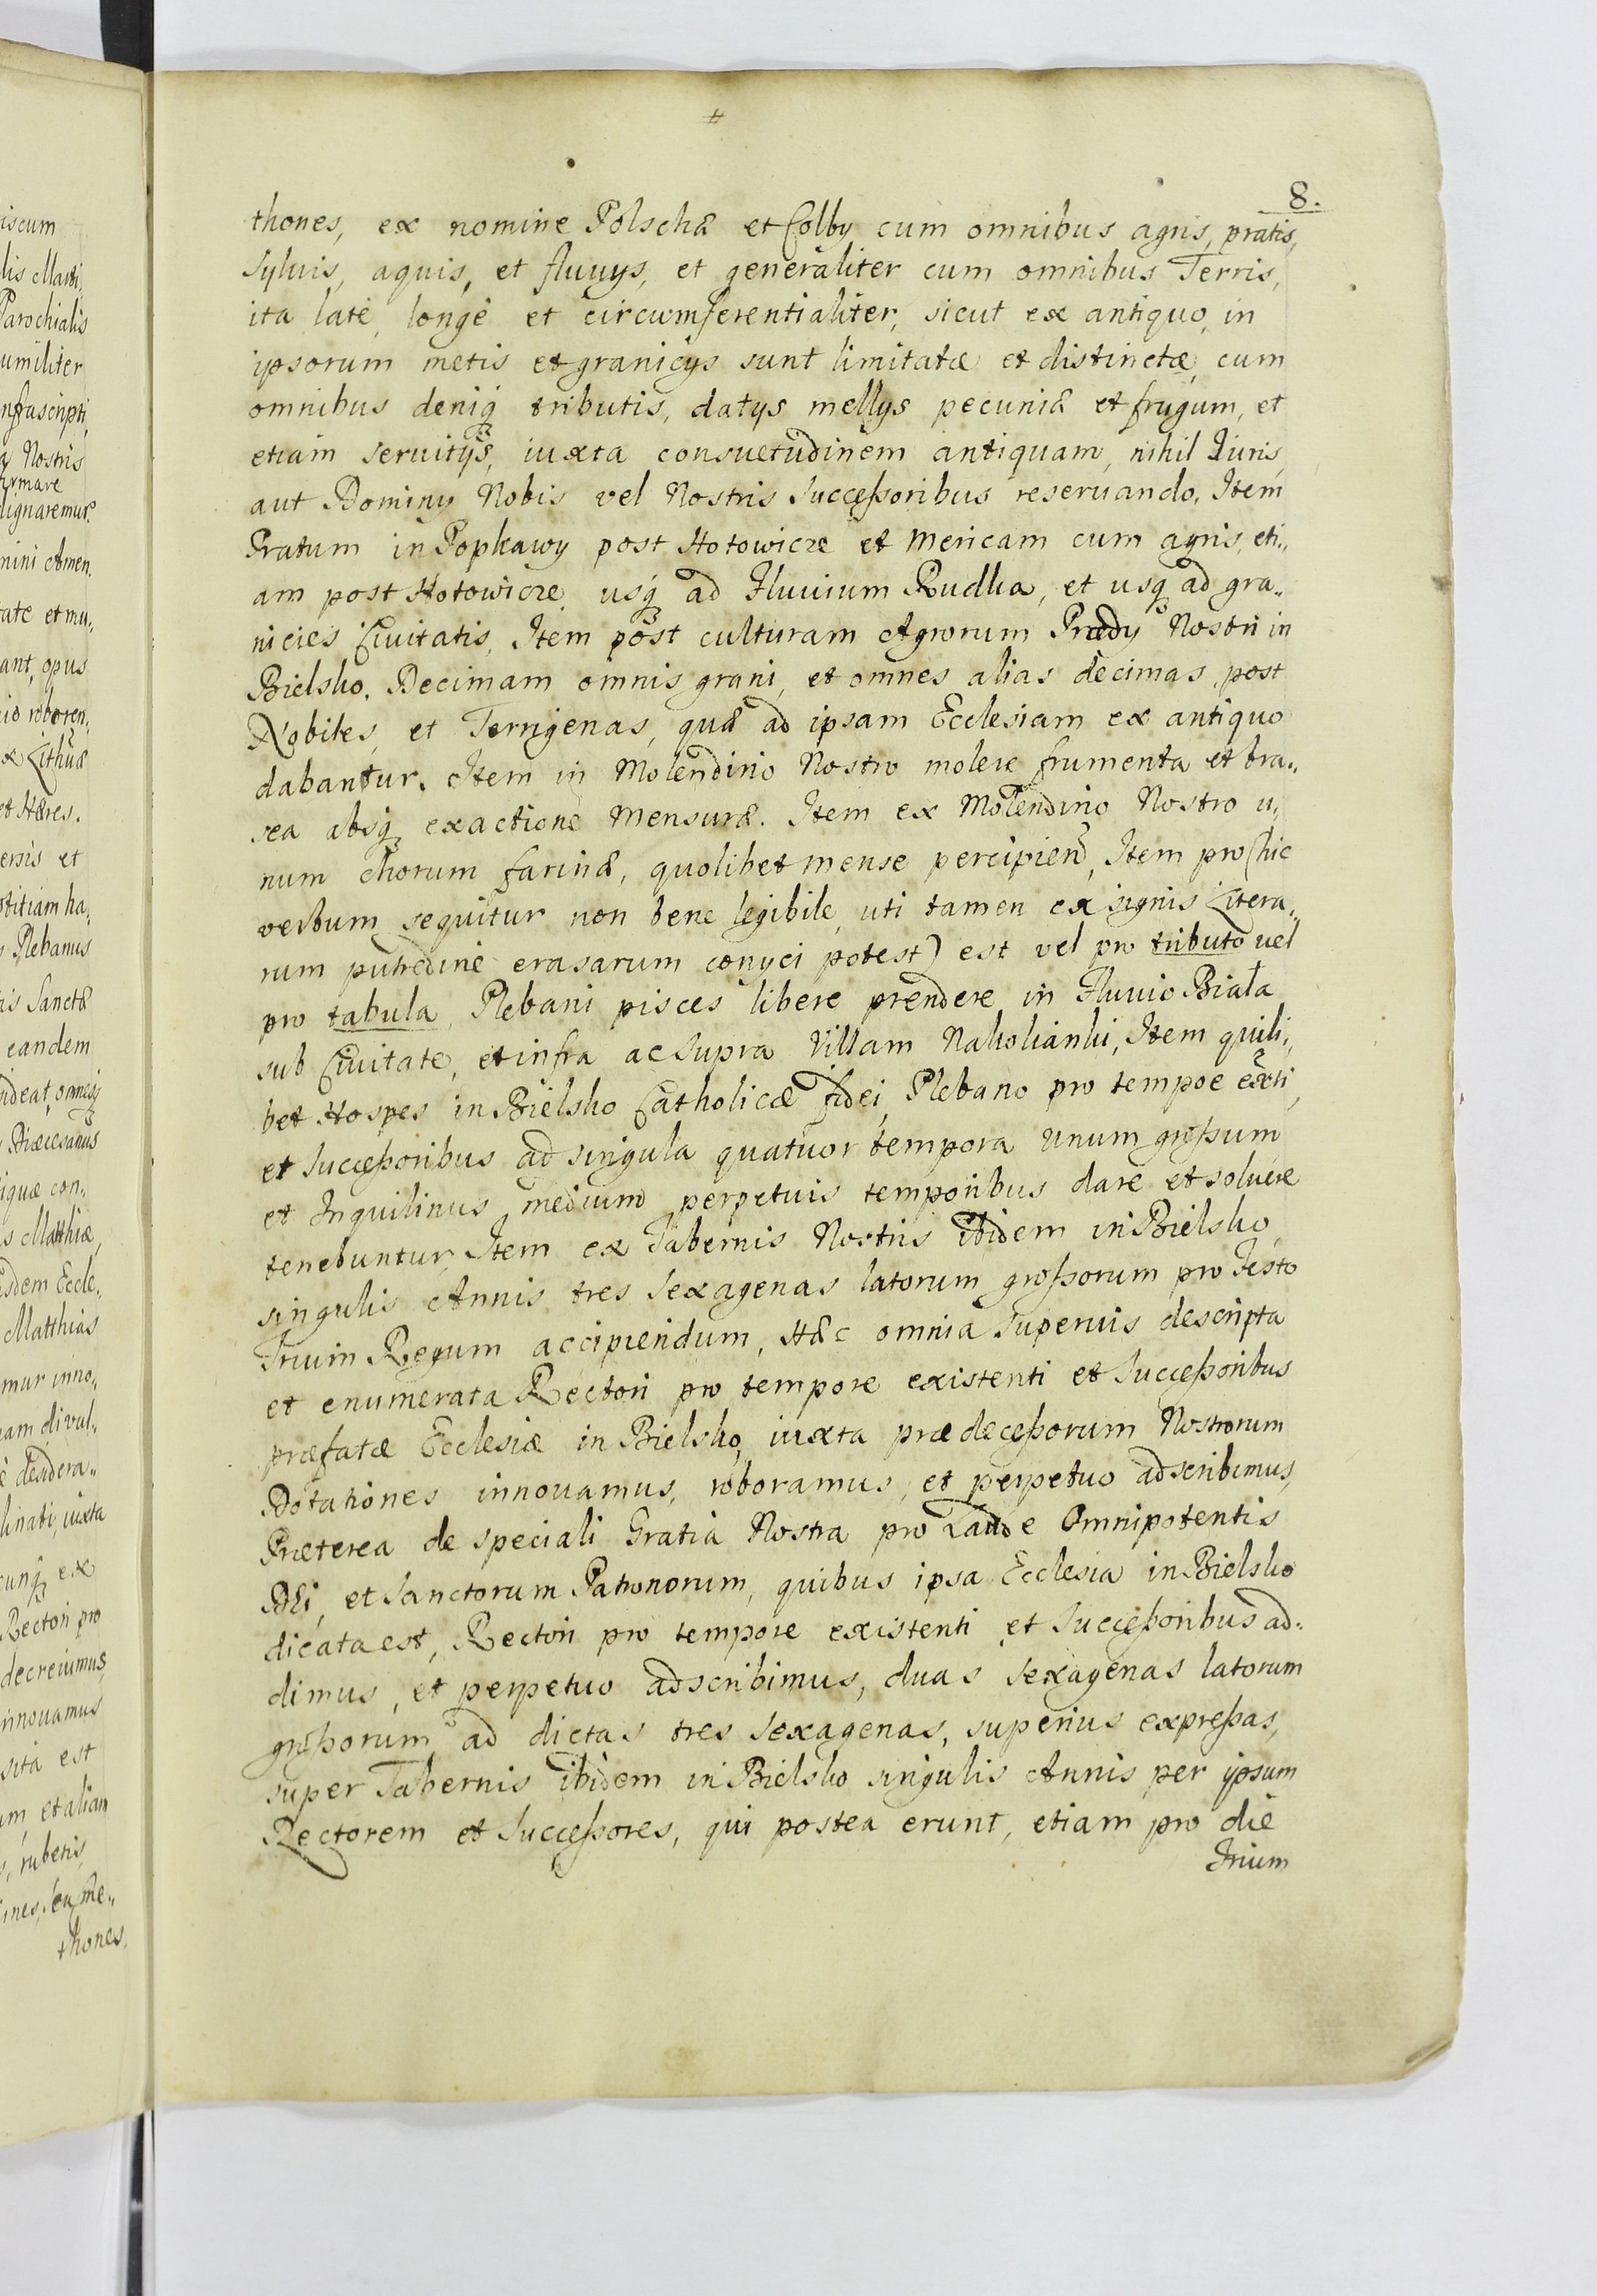 8.
thones, ex nomine Polschæ et Colby cum omnibus agris, pratis,
Syluis, aquis, et fluuys, et generaliter cum omnibus Terris,
ita latè, longè et circumferentialiter, sicut ex antiquo, in
ipsorum metis et granicys sunt limitatæ et distinctæ, cum
omnibus deniq tributis, datys mellys pecuniæ et frugum, et
etiam seruitijs, iuxta consuetudinem antiquam, nihil Iuris,
aut Dominy Nobis vel Nostris Successoribus reseruando. Item
Pratum in Popkawy post Hotowicze et Mericam cum agris, eti„
am post Hotowicze, usq ad Fluuium Rudka, et usq ad gra„
nicies Ciuitatis, Item post culturam Agrorum Prædy Nostri in
Bielsko. Decimam omnis grani, et omnes alias decimas, post
Nobiles, et Terrigenas, quæ ad ipsam Ecclesiam ex antiquo
dabantur. Item in Molendino Nostro molere frumenta et bra„
sea absq exactione Mensuræ. Item ex Molendino Nostro u„
num Chorum farinæ, quolibet mense percipiend, Item pro (hic
verbum sequitur non bene legibile, uti tamen ex signis Litera„
rum putredine erasarum conyci potest) est vel pro tributo vel
pro tabula, Plebani pisces libere prendere in Fluuio Biała
sub Ciuitate, et infra ac supra Villam Nakolianki, Item quili„
bet Hospes in Bielsko Catholicæ fidei, Plebano pro tempoe exñti,
et Successoribus ad singula quatuor tempora unum grossum
et Inquilinus medium perpetuis temporibus dare et soluere
tenebuntur, Item ex Tabernis Nostris ibidem in Bielsko
singulis Annis tres Sexagenas latorum grossorum pro Festo
Trium Regum accipiendum, Hæc omnia Superuis descripta
et enumerata Rectori pro tempore existenti et Successoribus
præfatæ Ecclesiæ in Bielsko, iuxta prædecessorum Nostrorum
Dotationes innouamus, roboramus, et perpetuo adscribimus,
Præterea de speciali Gratia Nostra pro Laude Omnipotentis
DEi, et Sanctorum Patronorum, quibus ipsa Ecclesia in Bielsko
dicata est, Rectori pro tempore existenti et Successoribus ad„
dimus, et perpetuo adscribimus, duas Sexagenas latorum
grossorum ad dictas tres Sexagenas, superius expressas,
super Tabernis ibidem in Bielsko singulis Annis per ipsum
Rectorem et Successores, qui postea erunt, etiam pro die
Trium